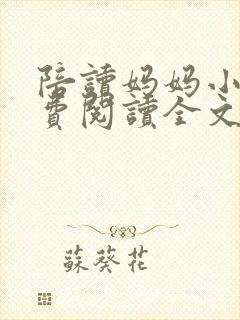 陪讀妈妈小
費閱讀全文
蘇葵花